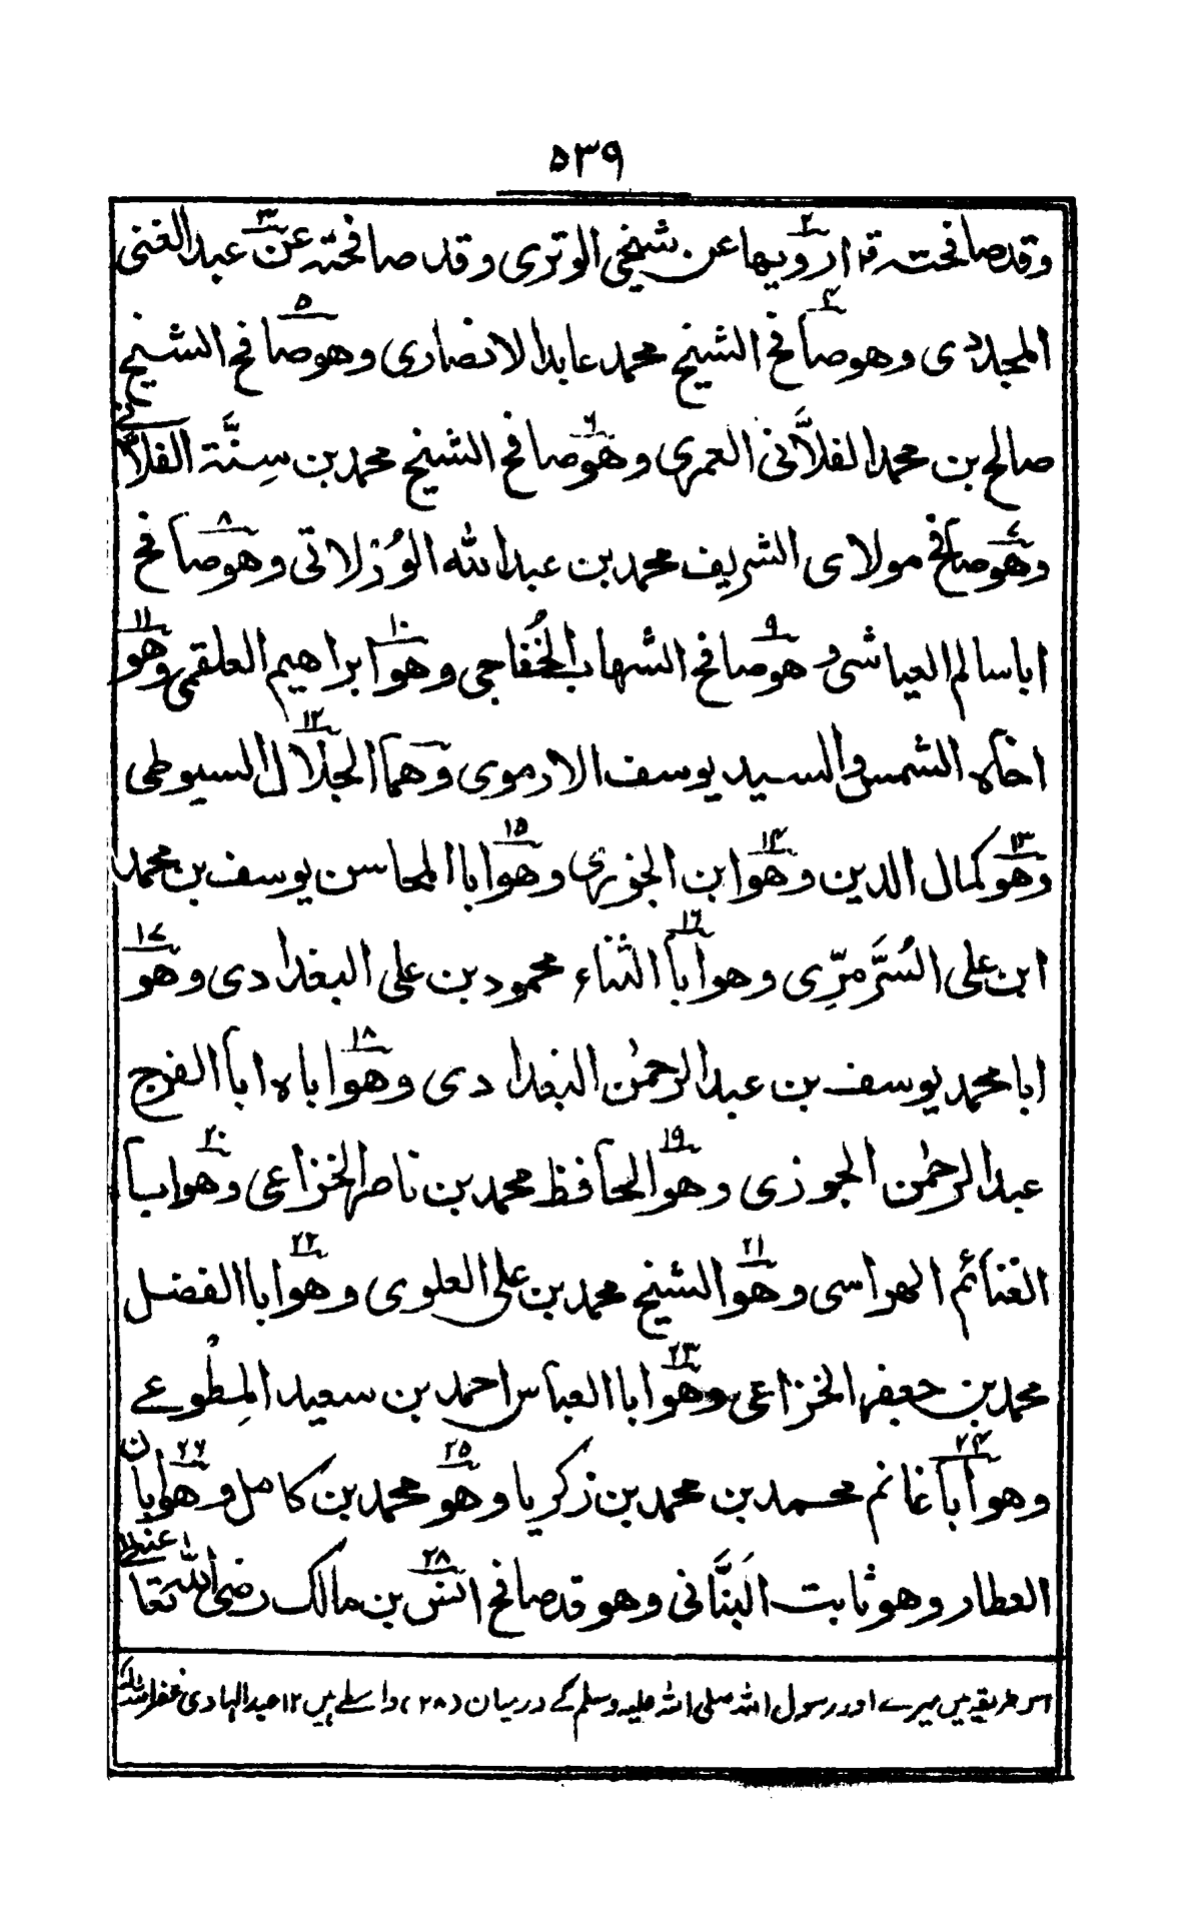 ٥٣٩
وقد صافحته قد ارويها عن شيخي الوتري وقد صافحته عن عبد الغنى
المجددى وهو صافح الشيخ محمد عابد الانصارى وهو صافح الشيخ
صالح بن محمد الفلاَّنى العمرى وهو صافح الشيخ محمد بن سِنَّة الفلانے
وهو صافح مولاى الشريف محمد بن عبد الله الوُزلاتى وهو صافح
ابا سالم العياشى وهو صافح الشهاب الخُفاجى وهو ابراهيم العلقمى وهو
اخاه الشمس والسيد يوسف الارموى وهما الجلال السيوطى
وهو كمال الدين وهو ابن الجزرى وهو ابا المحاسن يوسف بن محمد
ابن على السُّرَّمرِّى وهو ابا الثناء محمود بن على البغدادى وهو
ابا محمد يوسف بن عبد الرحمٰن البغدادى وهو اباه ابا الفرج
عبد الرحمٰن الجوزى وهو الحافظ محمد بن ناصر الخزاعى وهو ابا
الغنائم الهراسى وهو الشيخ محمد بن على العلوى وهو ابا الفضل
محمد بن جعفر الخزاعى وهو ابا العباس احمد بن سعيد المِطْوعے
وهو ابا غانم محمد بن محمد بن زكريا وهو محمد بن كامل وهو ابان
العطار وهو ثابت البَنَّانى وهو قد صافح انس بن مالك رضى الله تعا عنه
اس طریقہ میں میرے اور رسول اللہ صلی اللہ علیہ وسلم کے درمیان (٢٨) واسطے ہیں ١٢ عبد الہادی غفر اللہ لہ